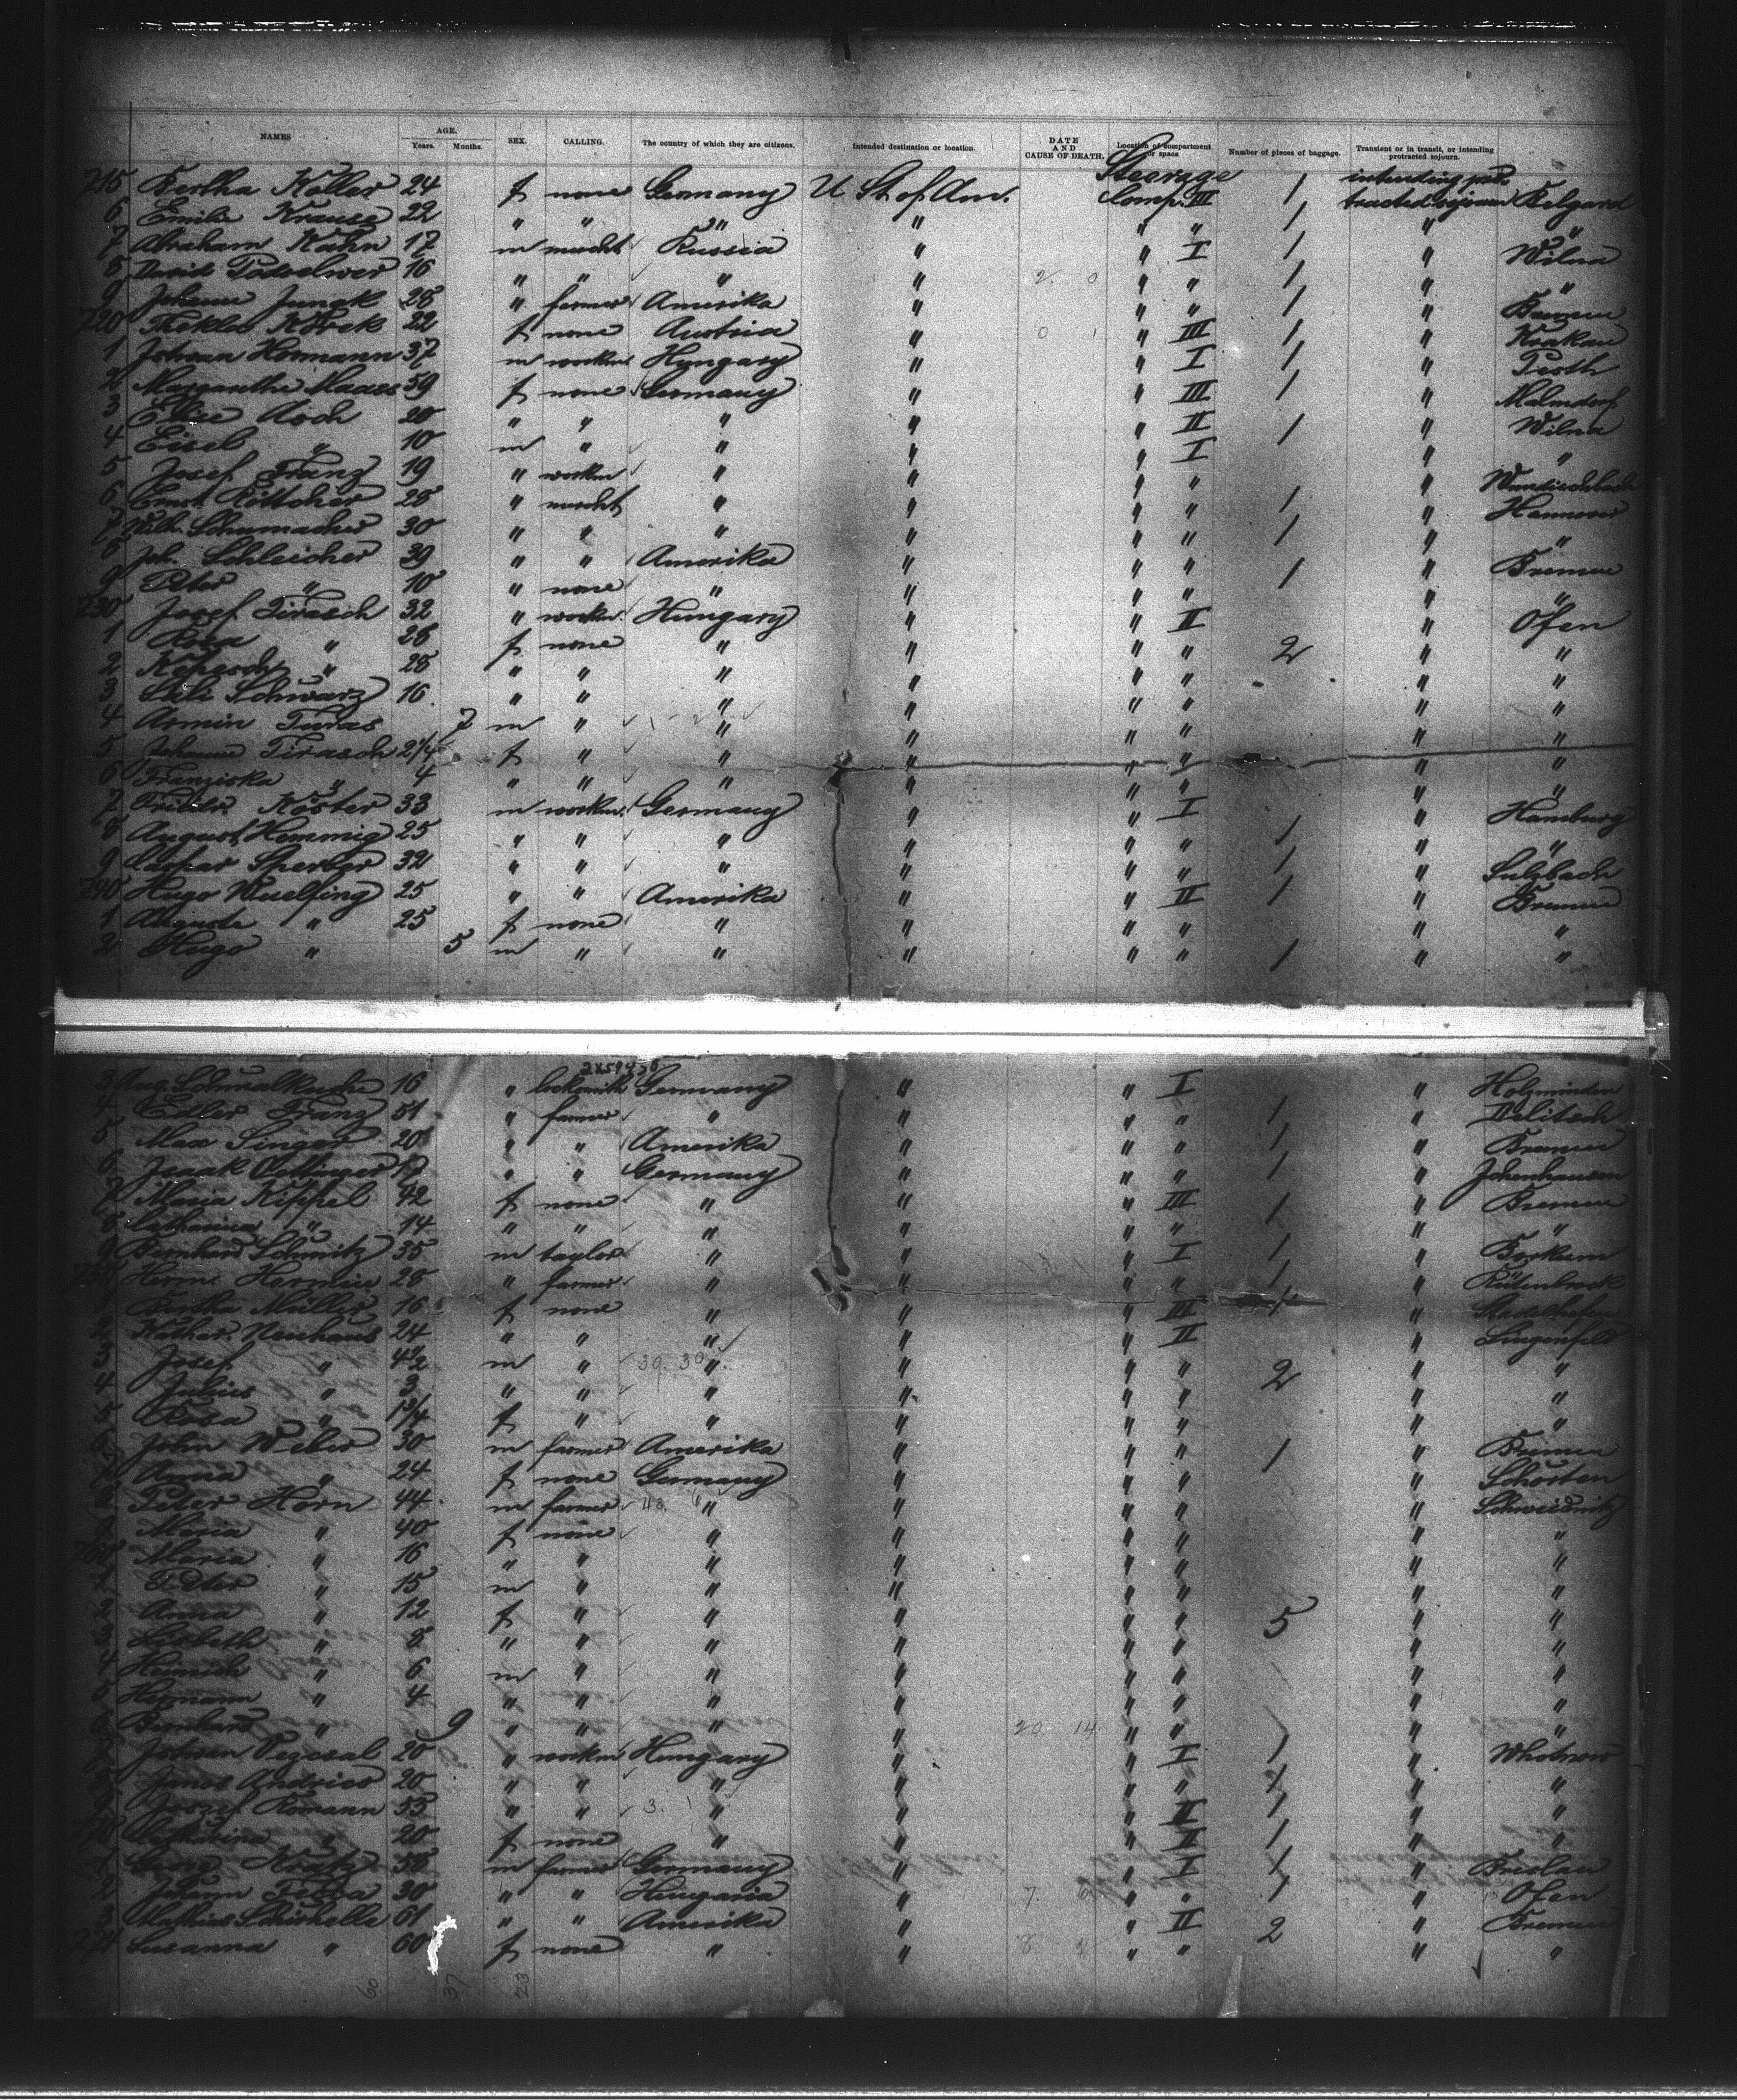 NAMES AGE. Years. Months. SEX. CALLING. The country of which they are citizens. Intended destination or location. DATE AND CAUSE OF DEATH. Location of compartment or space Number of pieces of baggage. Transient or in transit, or intending protracted sojourn.
Steerage intending pro-
715 Bertha Koller 24 f none Germany U St. of Am. Comp. III 1 tracted sojourn Belgard
6 Emilie Krause 22 " " " " " " 1 " "
7 Abraham Kahn 17 m mercht Russia " " I 1 " Wilna
8 David 16 " " " " " " 1 " "
9 Johann Jungk 28 " farmer Amerika " " " 1 " Bremen
720 Thekla 22 f none Austria " " III 1 " Krakau
1 Johann Hormann 37 m workm Hungary " " I 1 " Pesth
2 Margarethe Maass 59 f none Germany " " III 1 " Malmdorf
3 Elise Asch 20 " " " " " II 1 " Wilna
4 Eisel " 10 m " " " " I " "
5 Josef Franz 19 " workm " " " " "
6 Ernst Böttcher 28 " mercht " " " " 1 " Hannover
7 Wilh. Schumacher 30 " " " " " " 1 " "
8 Joh. Schleicher 39 " " Amerika " " " 1 " Bremen
9 Peter " 10 " none " " " " " "
730 Josef Tirasch 32 " workm. Hungary " " II " Ofen
1 Rosa " 28 f none " " " " 2 " "
2 " 28 " " " " " " " "
3 Schwarz 16 " " " " " " " "
4 Armin 7 m " " " " " " "
5 Johanna Tirasch 2 1/4 f " " " " " " "
6 Franziska " 4 " " " " " " " "
7 Friedr. Köster 33 m workm. Germany " " I " Hamburg
8 August Hemmig 25 " " " " " " 1 " "
9 Caspar Sperber 32 " " " " " " 1 " Sulzbach
740 Hugo Wuelfing 25 " " Amerika " " II 1 " Bremen
1 Auguste " 25 f none " " " " " "
2 Hugo " 5 m " " " " " 1 " "
2X59450
3 Aug. Schmalkuche 16 " locksmith Germany " " I " Holzminden
4 Edler Franz 51 " farmer " " " " 1 " Delitsch
5 Max Singer 20 " " Amerika " " " 1 " Bremen
6 Isaak Oettinger 17 " " Germany " " " 1 " Ichenhausen
7 Maria Kippel 42 f none " " " III 1 " Bremen
8 Catharina " 14 " " " " " " " "
9 Bernhard Schmitz 35 m taylor " " " I 1 " Borkum
750 Herm. 28 " farmer " " " " 1 " Rütenbrock
1 Bertha Müller 16 f none " " " III 1 " Stadelhofen
2 Kathar. Neuhaus 24 " " " " " II " Lingenfeld
3 Josef " 4 1/2 m " 39. 30 " " " " 2 " "
4 Julius " 3 " " " " " " " "
5 Rosa " 1 3/4 f " " " " " " "
6 John Weber 30 m farmer Amerika " " " 1 " Bremen
7 Anna " 24 f none Germany " " " " Schorten
8 Peter Horn 44 m farmer " " " " " Schweidnitz
9 Maria " 40 f none " " " " " "
760 Maria " 16 " " " " " " " "
1 Peter " 15 m " " " " " " "
2 Anna " 12 f " " " " " 5 " "
3 Lisbeth " 8 " " " " " " " "
4 Heinrich " 6 m " " " " " " "
5 Hermann " 4 " " " " " " " "
6 Bernhard " 9 " " " " 20. 14. " " " "
7 20 " workm Hungary " " I 1 "
8 Janos Andrics 20 " " " " " " 1 " "
9 Romann 55 " " 3. 1 " " " II 1 " "
770 Catharina " 20 f none " " " II 1 " "
1 Georg Kratz 50 m farmer Germany " " I 1 " Breslau
2 Johann 30 " " Hungaria " 7. 6 " " 1 " Ofen
3 Mathias 61 " " Amerika " " II 2 " Bremen
774 Susanna " 60 f none " " " " " "
60 37 23